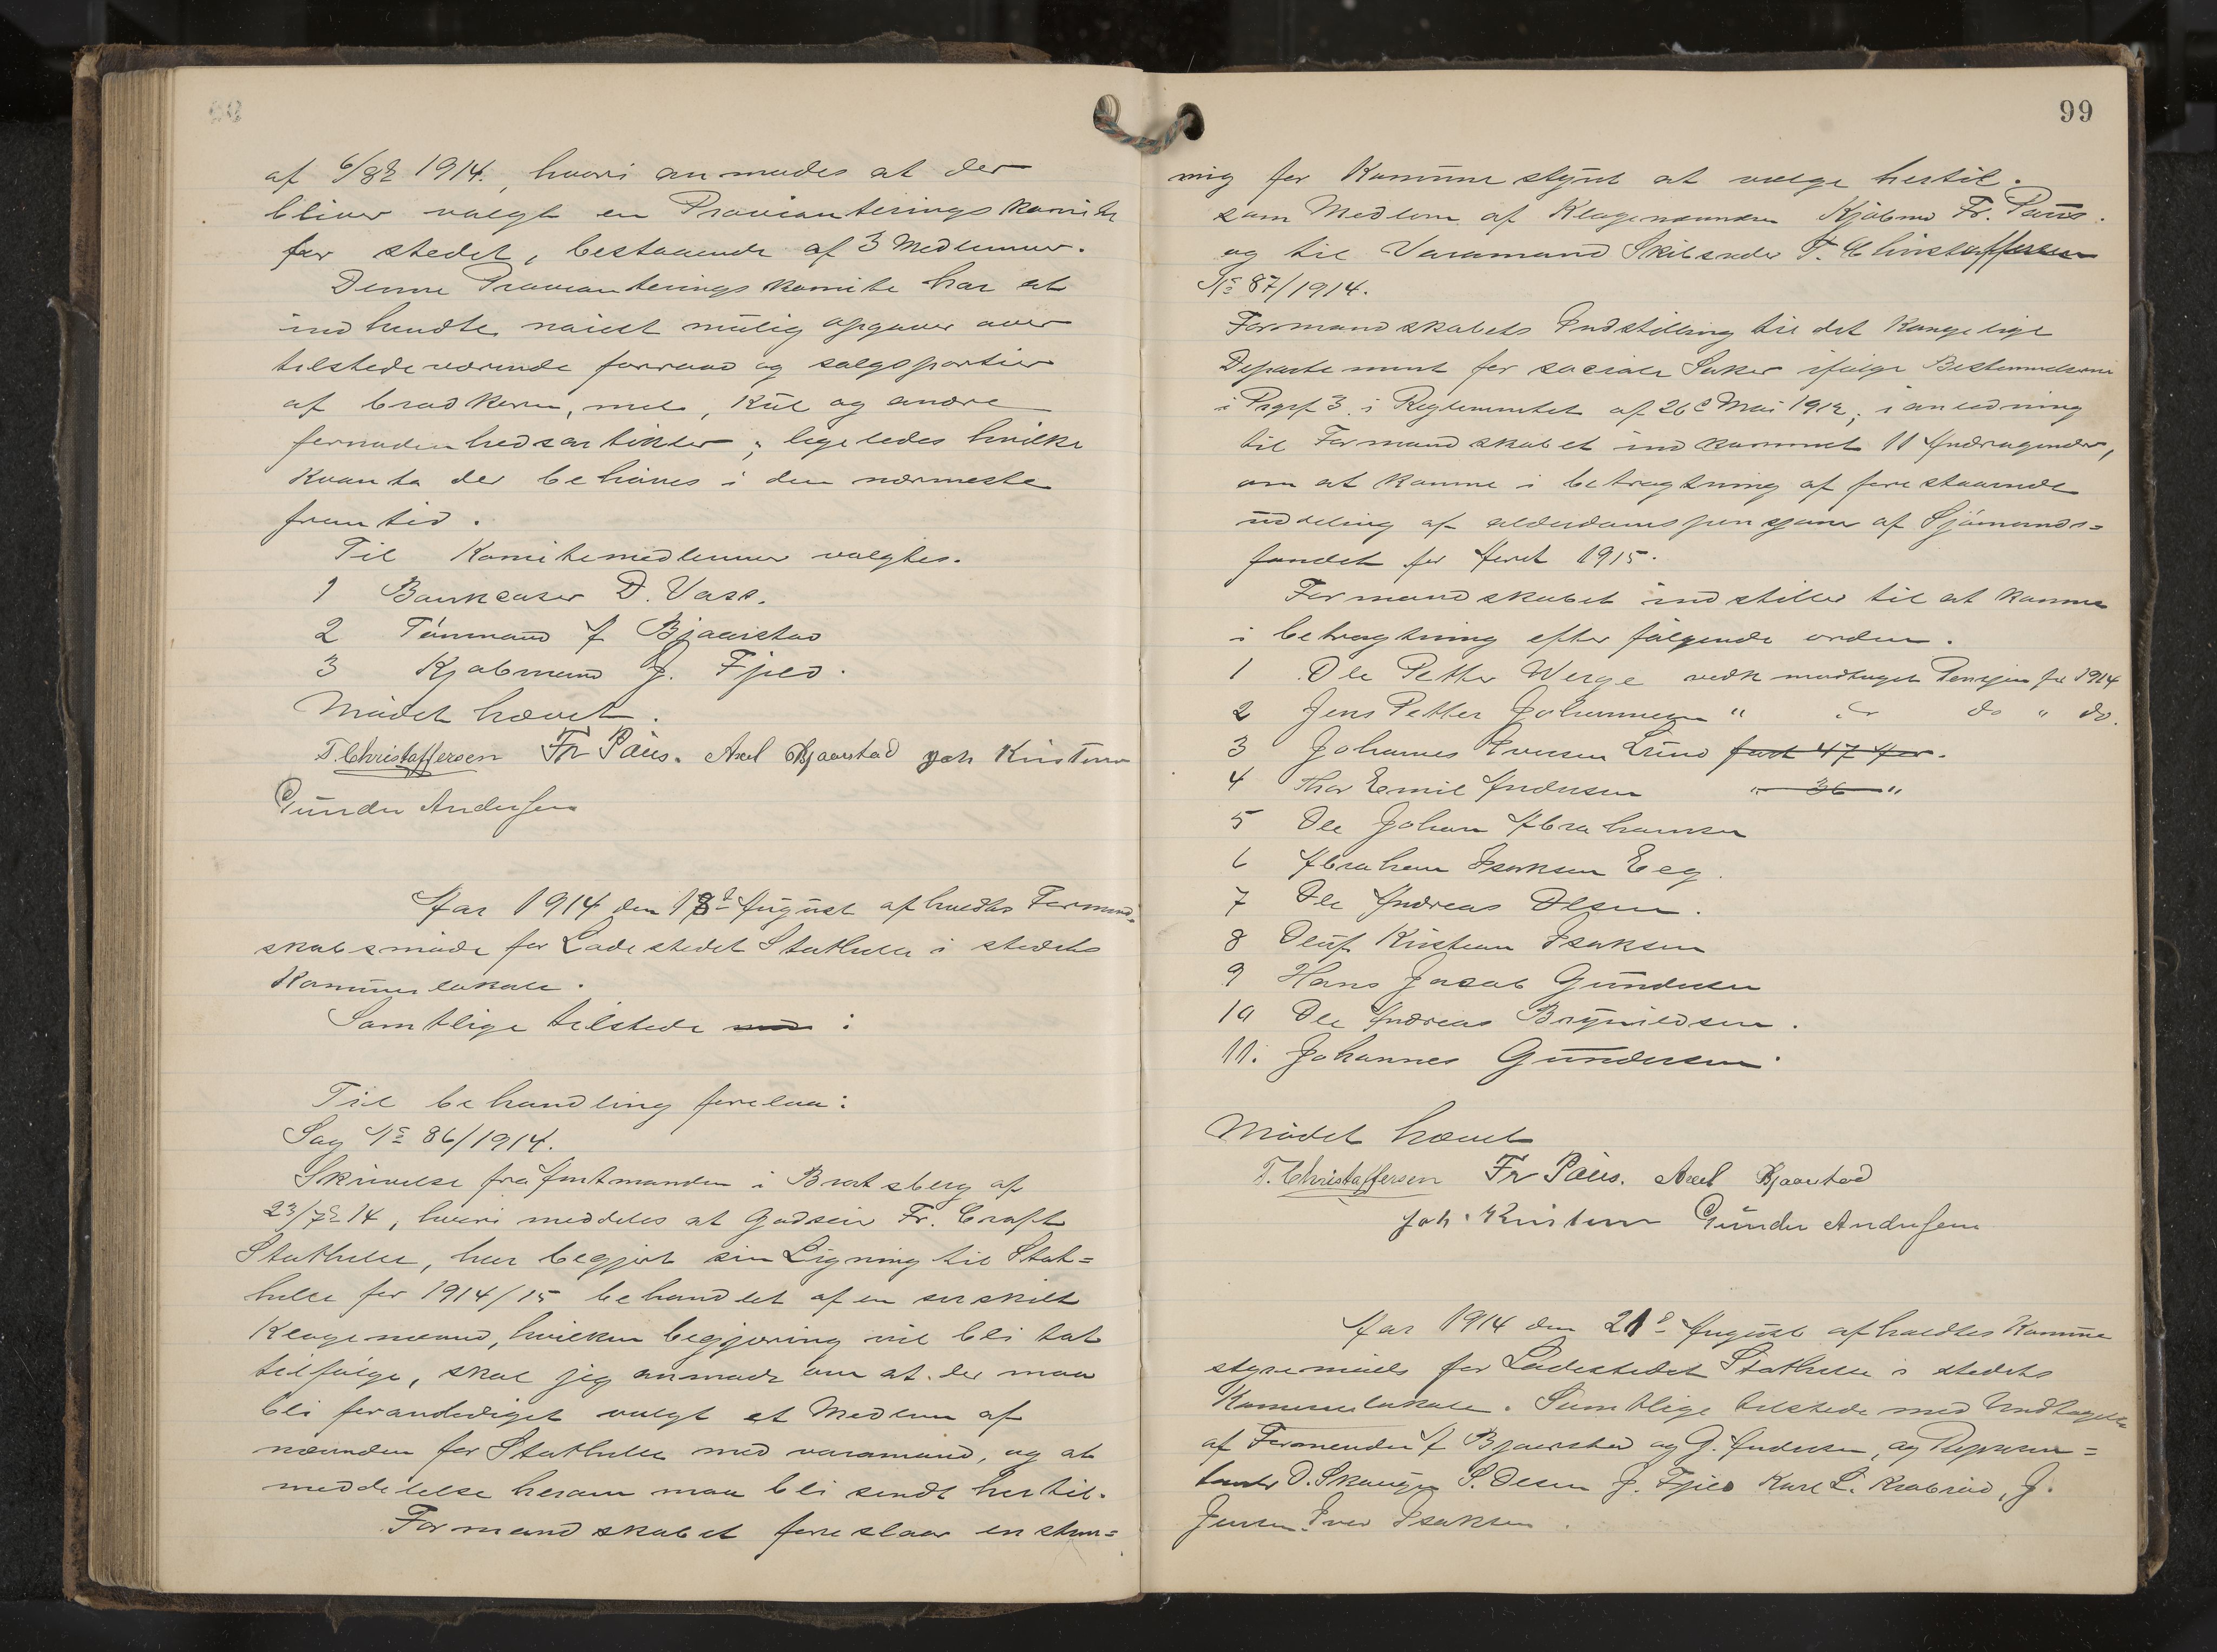 af 6/8 1914., hvori anmodes at der
bliver valgt en Provianteringskomite
for stedet, bestaaende af 3 Medlemmer.
Denne Provianteringskomite har at
indhendte nøiest mulig opgaver over
tilstedeværende forraad og salgspartier
af brødkorn, mel, Kul og andre
fornødenhedsartikler; ligeledes hvilke
Kvanta der behøves i den nærmeste
fremtid.
Til Komitemedlemmer valgtes.
1 Bankcaser D. Vass.
2 Tømmand A Bjaarstad
3 Kjøbmand J. Fjeld.
Mødet hævet.
T. Christoffersen Fr Paus. Axel Bjaarstad Joh Kristensen
Gunder Andersen
Aar 1914 den 18de August afholdtes Formand-
skabsmøde for Ladestedet Stathelle i stedets
Kommunelokale.
Samtlige tilstede :
Til behandling forelaa:
Sag No 86/1914.
Skrivelse fra Amtmanden i Bratsberg af
23/7 14, hvori meddeles at Godseier Fr. Croft
Stathelle, har begjært sin Ligning til Stat=
helle for 1914/15 behandlet af en særskilt
Klagenævnd, hvilken begjæring vil bli tat
tilfølge, skal jeg anmode om at der maa
bli foranlediget valgt et Medlem af
nævnden for Stathelle med varamand, og at
meddelelse herom maa bli sendt hertil.
Formandskabet foreslaar enstem=
99
mig for Kommunestyret at vælge hertil.
som Medlem af Klagenævnden Kjøbmd Fr. Paus.
og til Varamand Skibsreder T. Christoffersen
No 87/1914.
Formandskabets Indstilling til det Kongelige
Departement for sociale Saker ifølge Bestemmelserne
i Prgrf 3. i Reglementet af 26de Mai 1912; i anledning
til Formandskabet indkommet 11 Andragender,
om at komme i betragtning af forestaaende
uddeling af alderdomspensjoner af Sjømands=
fondet for Aaret 1915.
Formandskabet indstiller til at komme
i betragtning efter følgende orden.
1 Ole Petter Werge vedk modtaget Pensjon for 1914
2 Jens Petter Johannesen " do " do.
3 Johannes Iversen Lund fart 47 Aar.
4 Thor Emil Andersen " 36 "
5 Ole Johan Abrahamsen
6 Abraham Isaksen Eeg.
7 Ole Andreas Olsen.
8 Oluf Kristian Isaksen
9 Hans Jacob Gundersen
10 Ole Andreas Brynildsen.
11. Johannes Gundersen.
Mødet hævet
T. Christoffersen Fr Paus. Axel Bjaarstad
Joh. Kristensen Gunder Andersen
Aar 1914 den 21de August afholdtes Kommune
styremøde for Ladestedet Stathelle i stedets
Kommunelokale. Samtlige tilstede med Undtagelse
af Formænder A Bjaarstad og G. Andersen, og Repræsen=
tanter O. Skaugen S. Olsen J. Fjeld Karl L. Krabrød, J.
Jensen. Iver Isaksen.